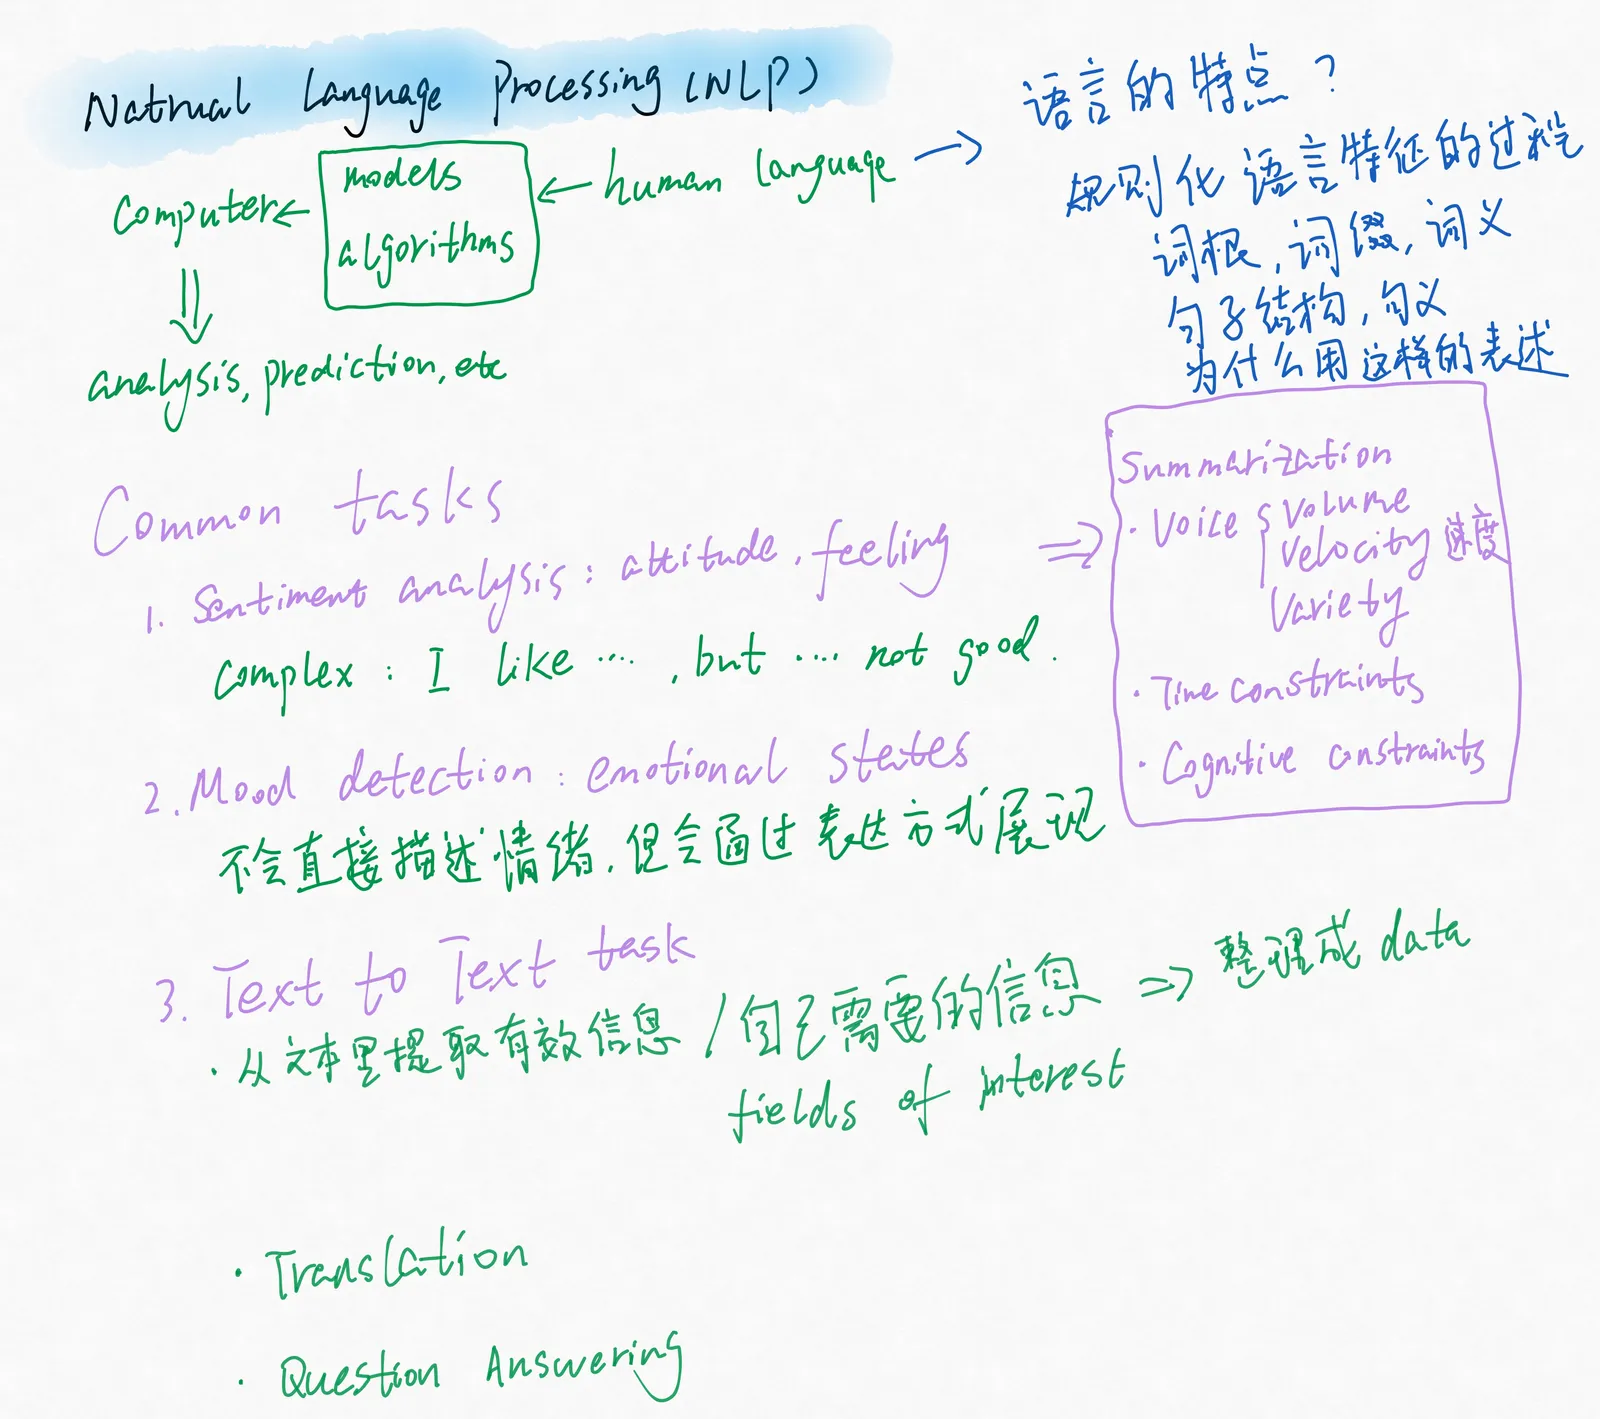 Natrual Language Processing (NLP)
语言的特点?
规则化语言特征的过程
词根,词缀,词义
句子结构,句义
为什么用这样的表述
Computer ← models algorithms ← human language →
analysis, prediction, etc
Common tasks
1. Sentiment analysis: attitude, feeling ⇒
complex: I like ····, but ···· not good.
2. Mood detection: emotional states
不会直接描述情绪,但会通过表达方式展现
Summarization
· Voice { Volume
Velocity 速度
Variety
· Time constraints
· Cognitive constraints
3. Text to Text task
· 从文本里提取有效信息 / 自己需要的信息 ⇒ 整理成 data
fields of interest
· Translation
· Question Answering